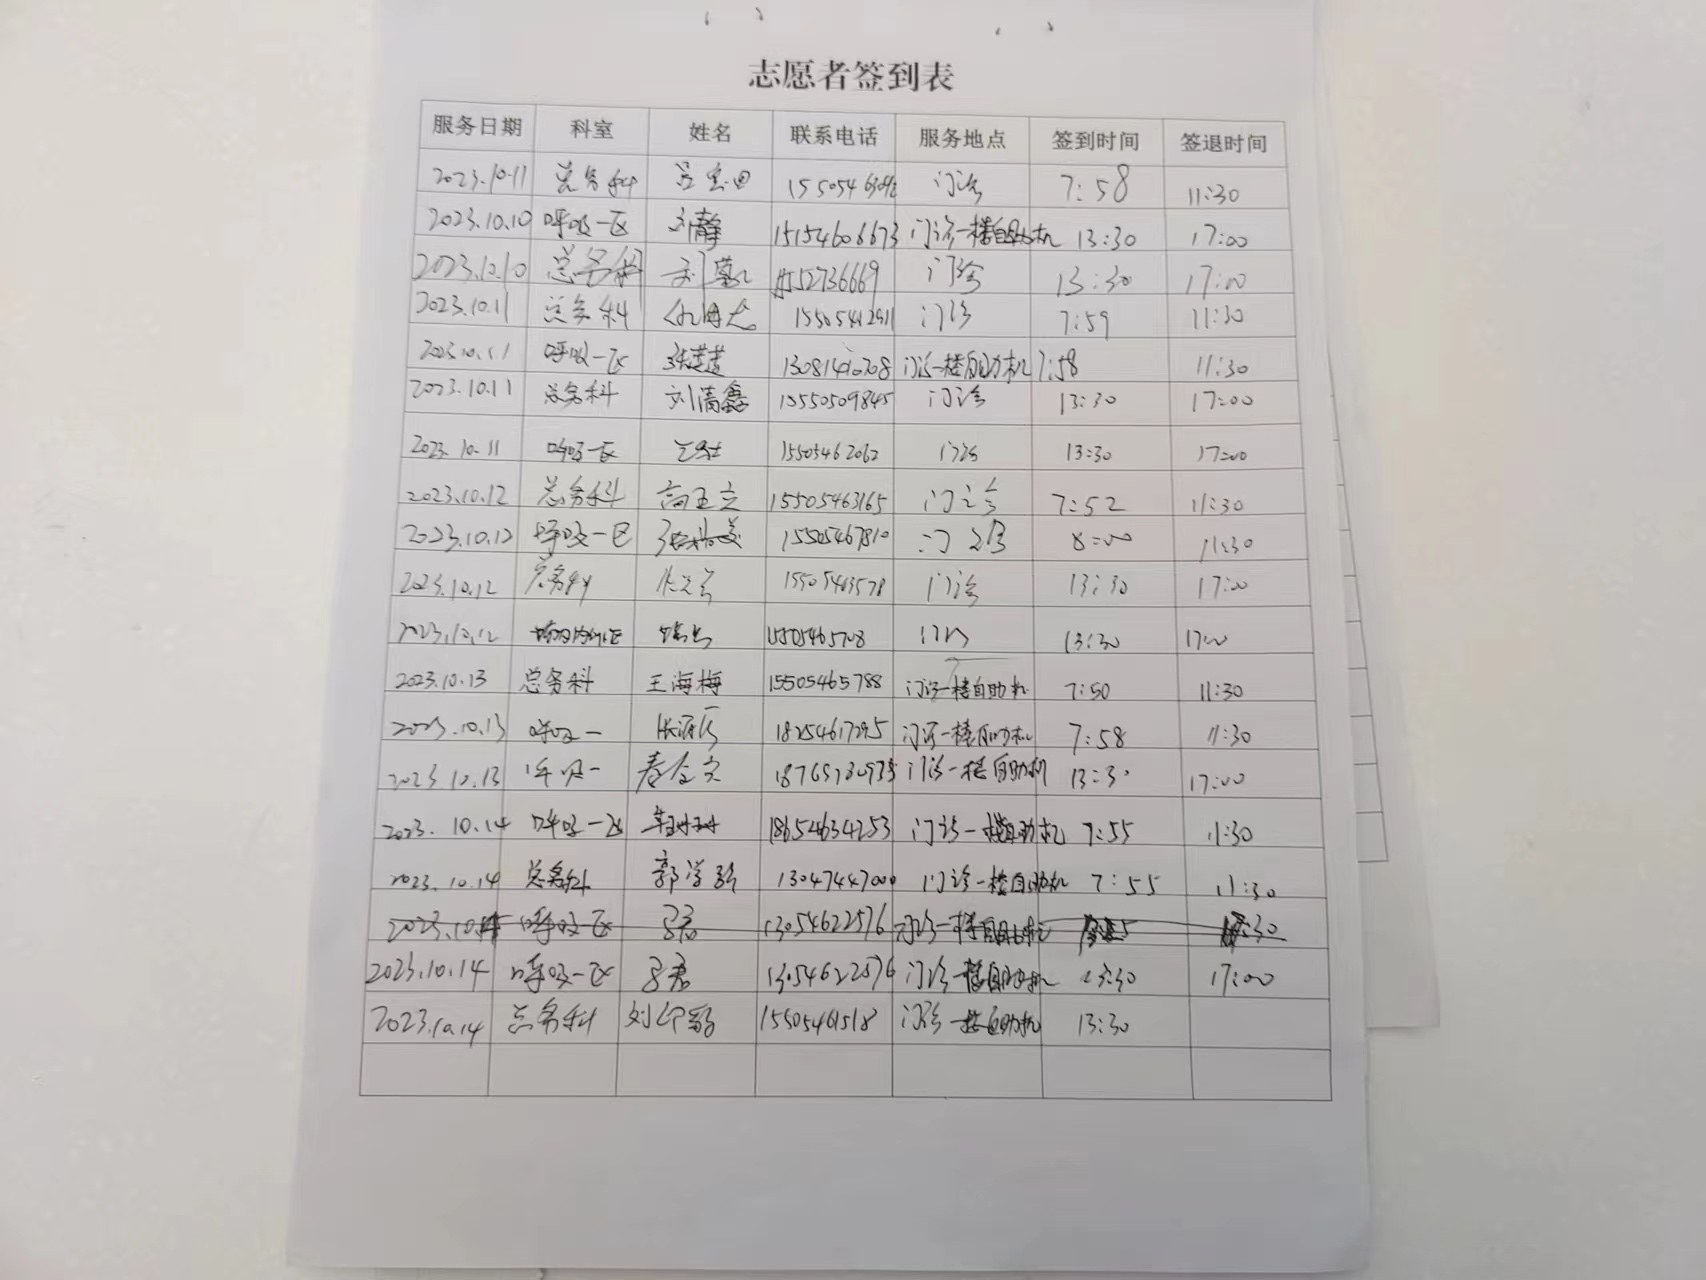 志愿者签到表
服务日期 科室 姓名 联系电话 服务地点 签到时间 签退时间
2023.10.11 总务科 门诊 7:58 11:30
2023.10.10 呼吸一区 刘静 15154606673 门诊一楼自助机 13:30 17:00
2023.10.10 总务科 门诊 13:30 17:00
2023.10.11 总务科 15505412911 门诊 7:59 11:30
2023.10.11 呼吸一区 门诊一楼自助机 7:58 11:30
2023.10.11 总务科 刘清鑫 15550509845 门诊 13:30 17:00
2023.10.11 呼吸一区 15505462062 门诊 13:30 17:00
2023.10.12 总务科 高玉立 15505463165 门诊 7:52 11:30
2023.10.12 呼吸一区 15505467810 门诊 8:00 11:30
2023.10.12 总务科 15505463578 门诊 13:30 17:00
2023.10.12 15505465708 门诊 13:30 17:00
2023.10.13 总务科 王海梅 15505465788 门诊一楼自助机 7:50 11:30
2023.10.13 呼吸一 18254617295 门诊一楼自助机 7:58 11:30
2023.10.13 呼吸一 门诊一楼自助机 13:30 17:00
2023.10.14 呼吸一区 18654634253 门诊一楼自助机 7:55 11:30
2023.10.14 总务科 郭学玲 13047447000 门诊一楼自助机 7:55 11:30
呼吸一区 13054622576 门诊一楼自助机
2023.10.14 呼吸一区 13054622576 门诊一楼自助机 13:30 17:00
2023.10.14 总务科 15505461518 门诊一楼自助机 13:30